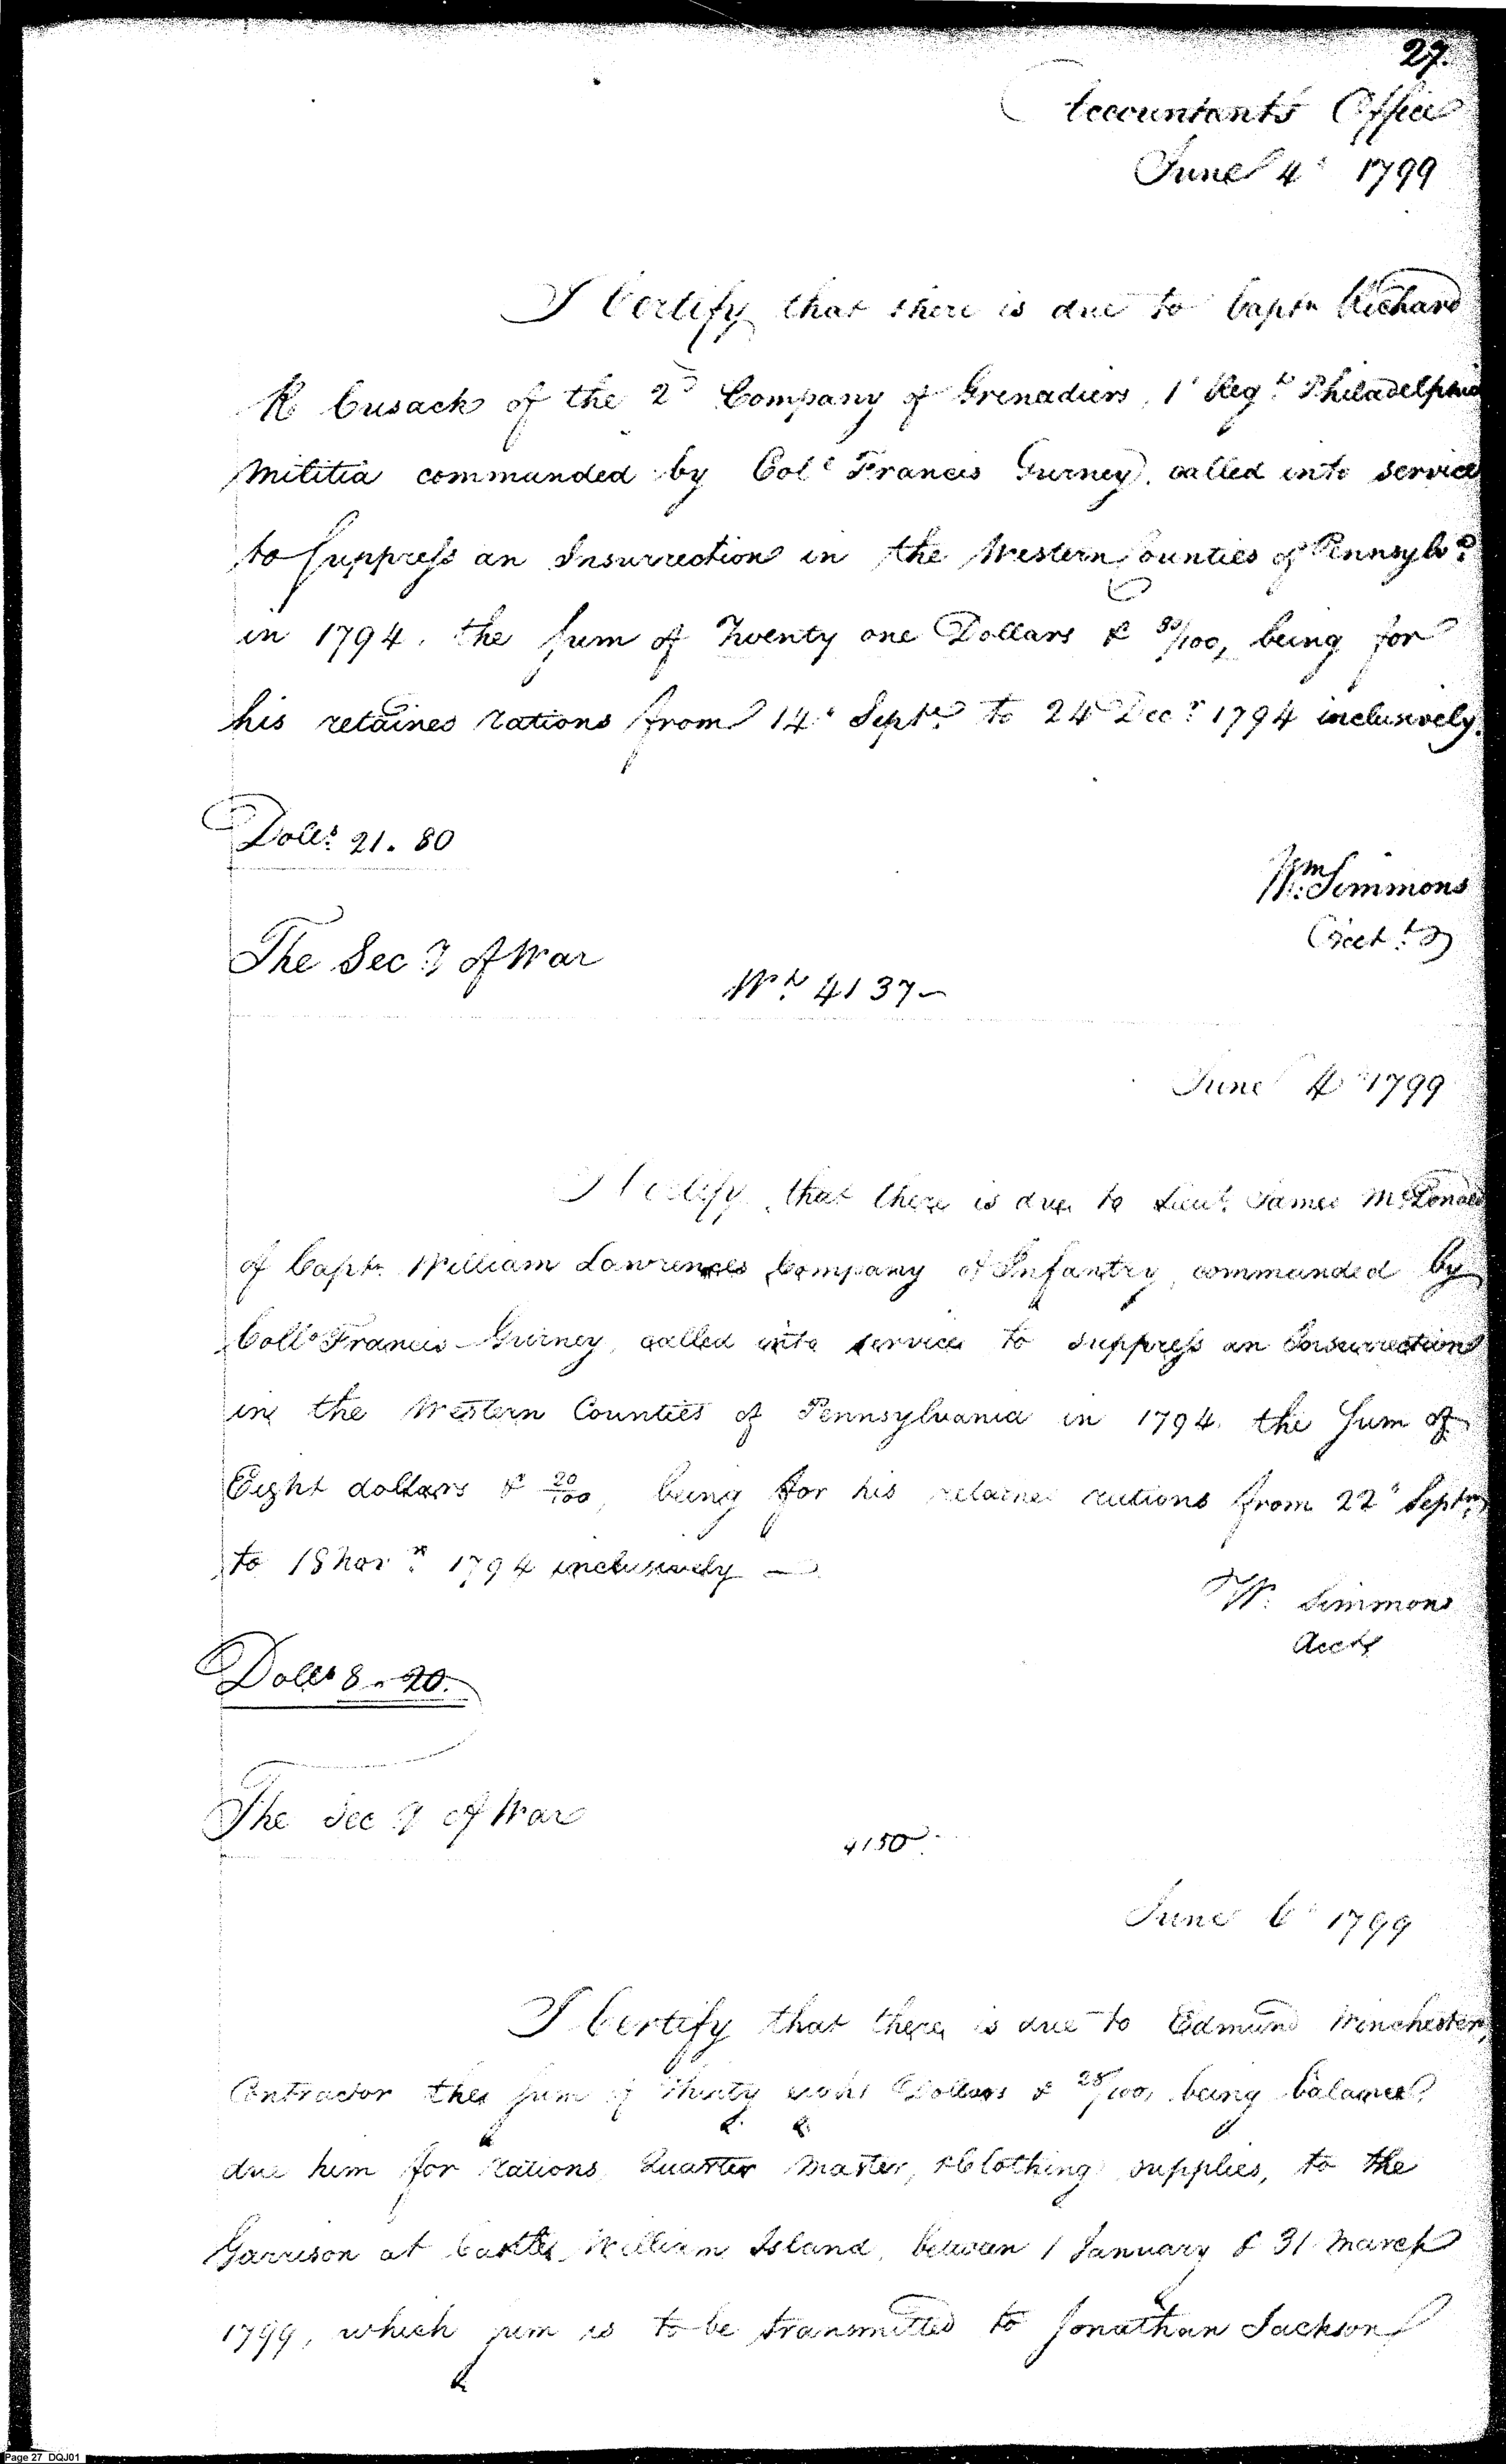 27.
Accountants Office
June 4th 1799
I Certify that there is due to Captn Richard
R Cusack of the 2d Company of Grenadiers, 1t Regt Philadelphia
Militia commanded by Coll Francis Gurney, called into service
to suppress an Insurrection in the Western Counties of Pennsylva
in 1794, the sum of Twenty one Dollars & 80/100, being for
his retained rations from 14th Septr to 24 Decr 1794 inclusively.
Dolls 21. 80
Wm Simmons
Acctt
The Secy of War
Wt 4137
June 4th 1799
I Certify, that there is due to Lieut James McDonald
of Captn William Lawrences Company of Infantry, commanded by
Collo Francis Gurney, called into service to suppress an Insurrection
in the Western Counties of Pennsylvania in 1794, the sum of
Eight dollars & 20/100, being for his retained rations from 22d Septr
to 18 Novr 1794 inclusively —
W. Simmons
Acctt
Dolls 8. 20.
The Secy of War
4150
June 6th 1799
I Certify that there is due to Edmund Winchester,
Contractor the sum of Thirty eight Dollars & 28/100, being balance
due him for rations, Quarter Master, & Clothing supplies, to the
Garrison at Castle William Island, between 1 January & 31 March
1799, which sum is to be transmitted to Jonathan Jackson
Page 27 DQJ01